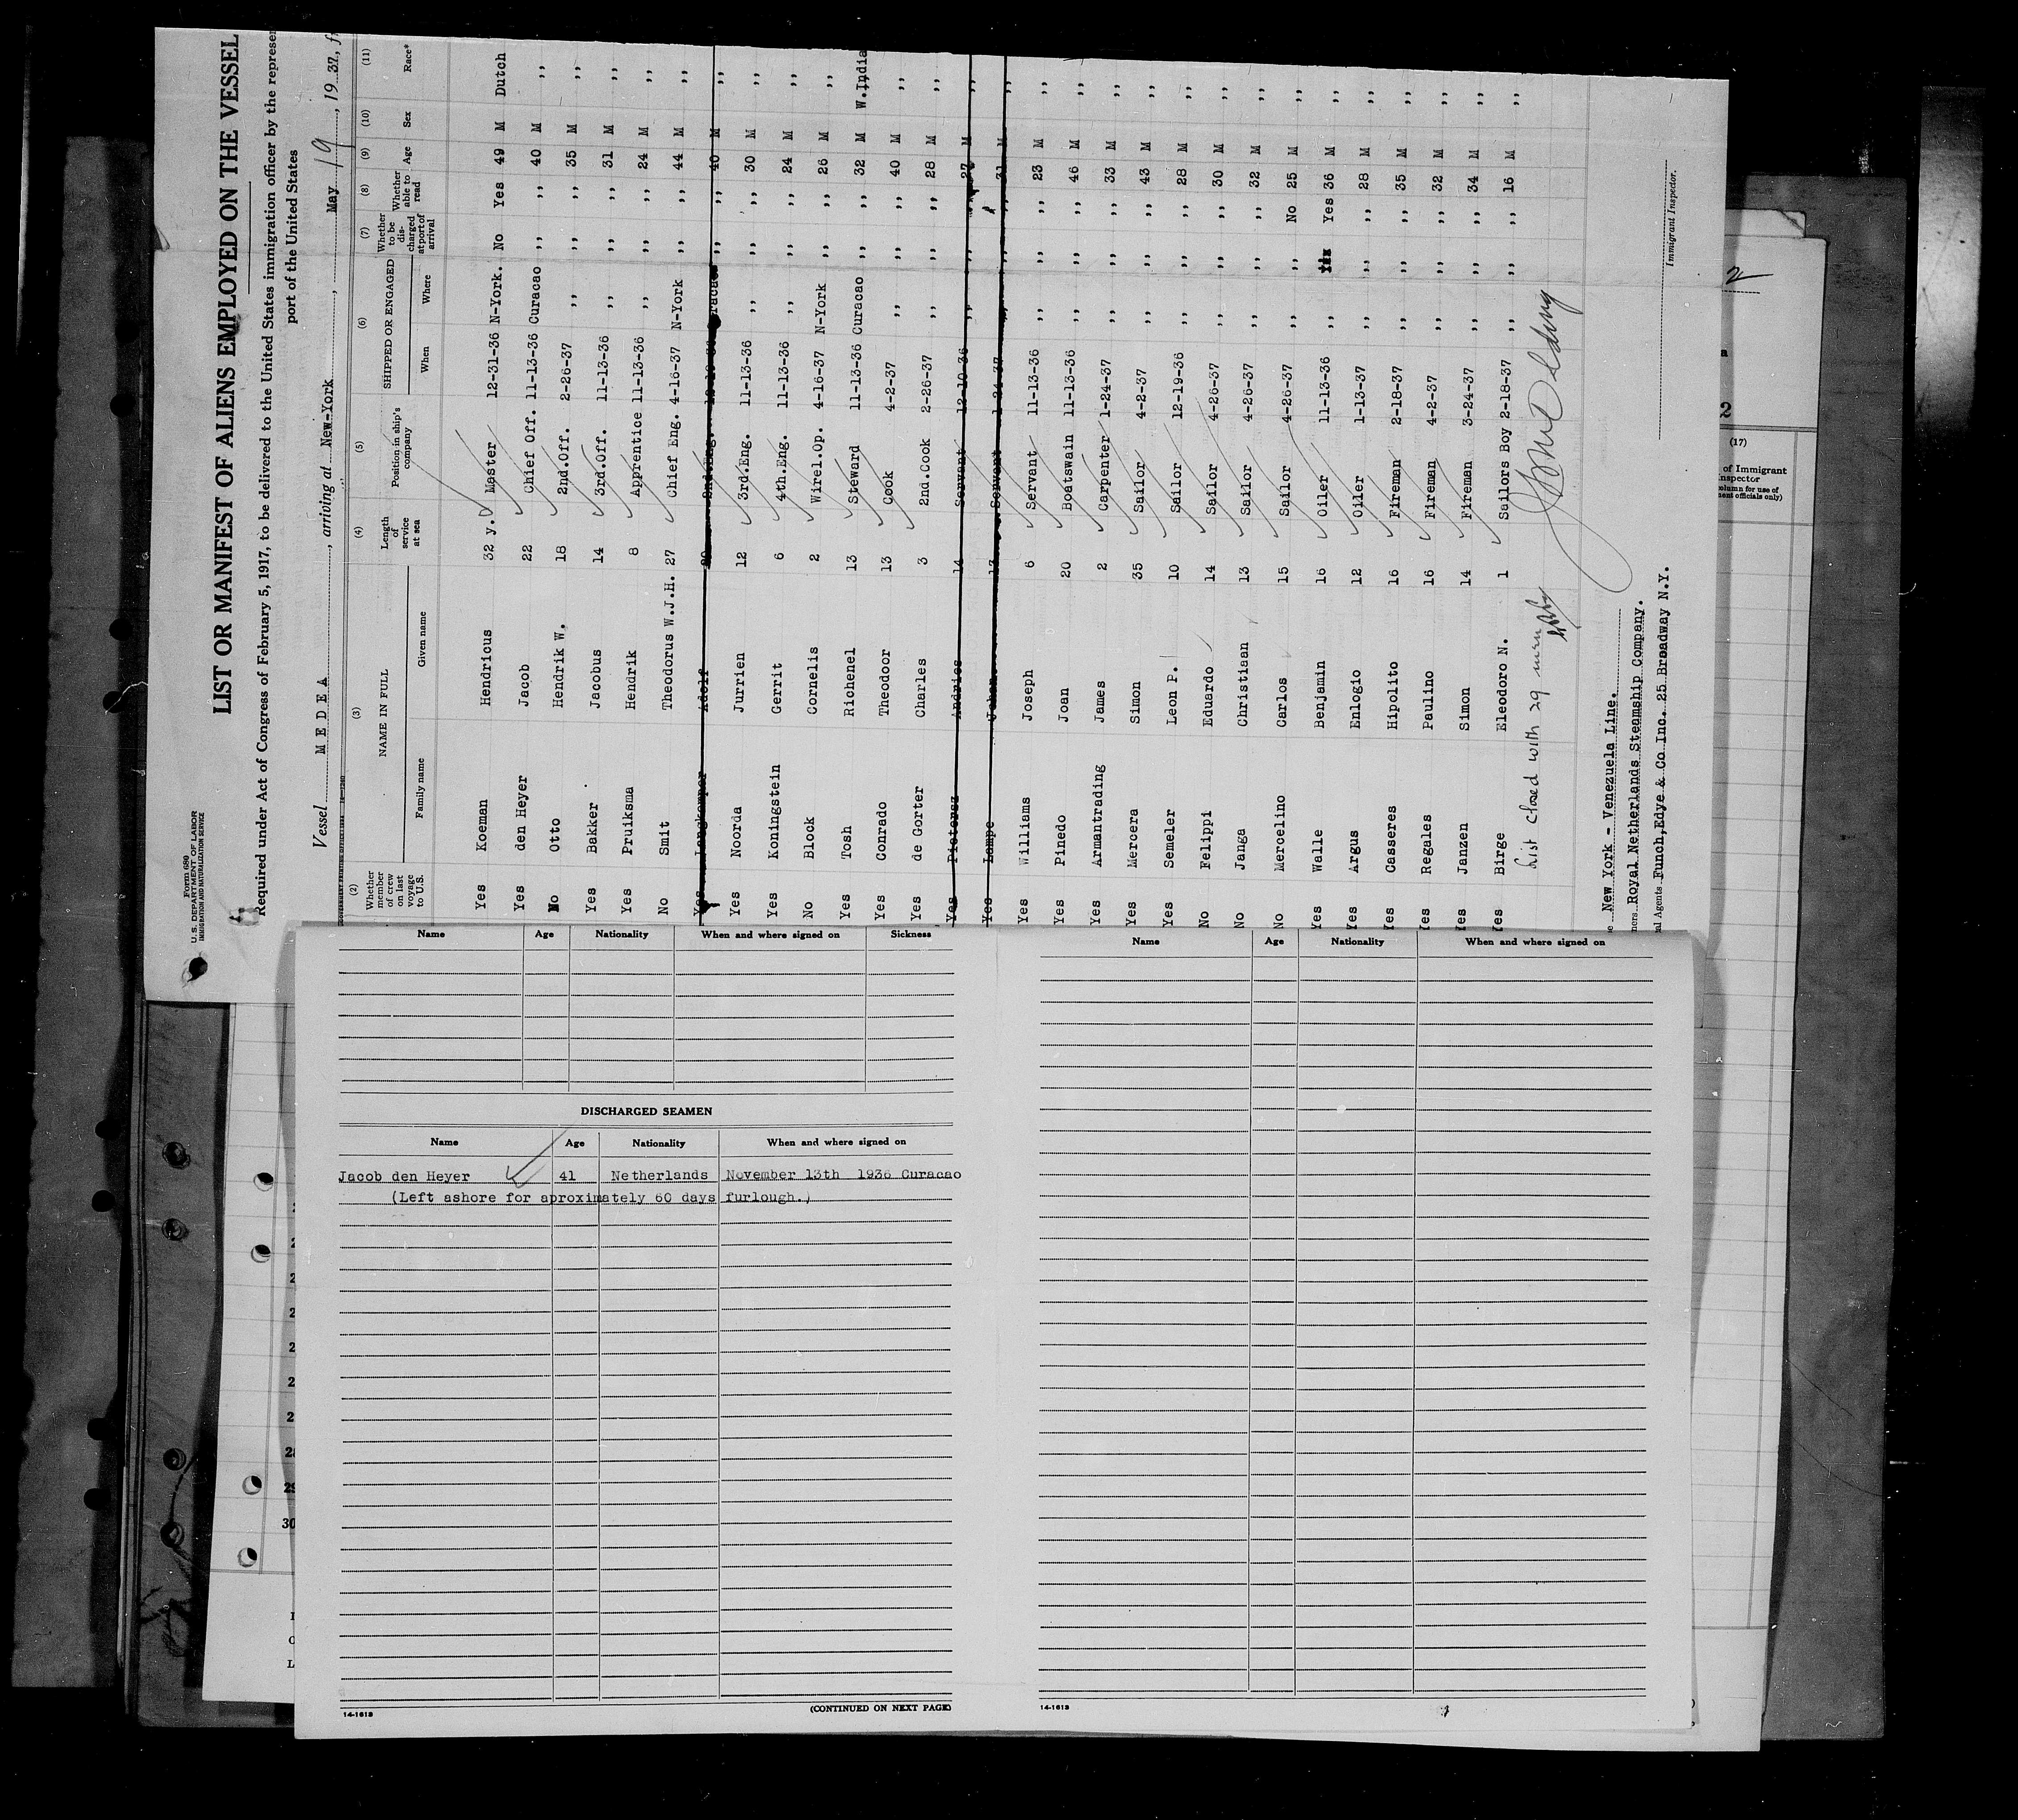 Form 689
U.S. DEPARTMENT OF LABOR
IMMIGRATION AND NATURALIZATION SERVICE
LIST OR MANIFEST OF ALIENS EMPLOYED ON THE VESSEL
Required under Act of Congress of February 5, 1917, to be delivered to the United States immigration officer by the represen
port of the United States
Vessel MEDEA, arriving at New-York, May 19, 1937, fr
(2) (3) (4) (5) (6) (7) (8) (9) (10) (11)
Whether member of crew on last voyage to U.S. NAME IN FULL Family name Given name Length of service at sea Position in ship's company SHIPPED OR ENGAGED When Where Whether to be discharged at port of arrival Whether able to read Age Sex Race*
Yes Koeman Hendricus 32 y. Master 12-31-36 N-York. No Yes 49 M Dutch
Yes den Heyer Jacob 22 Chief Off. 11-13-36 Curacao ,, ,, 40 M ,,
No Otto Hendrik W. 18 2nd.Off. 2-26-37 ,, ,, ,, 35 M ,,
Yes Bakker Jacobus 14 3rd.Off. 11-13-36 ,, ,, ,, 31 M ,,
Yes Pruiksma Hendrik 8 Apprentice 11-13-36 ,, ,, ,, 24 M ,,
No Smit Theodorus W.J.H. 27 Chief Eng. 4-16-37 N-York ,, ,, 44 M ,,
Yes Adolf 2nd.Eng. Curacao ,, ,, 40 M ,,
Yes Noorda Jurrien 12 3rd.Eng. 11-13-36 ,, ,, ,, 30 M ,,
Yes Koningstein Gerrit 6 4th.Eng. 11-13-36 ,, ,, ,, 24 M ,,
No Block Cornelis 2 Wirel.Op. 4-16-37 N-York ,, ,, 26 M ,,
Yes Tosh Richenel 13 Steward 11-13-36 Curacao ,, ,, 32 M W.India
Yes Conrado Theodoor 13 Cook 4-2-37 ,, ,, ,, 40 M ,,
Yes de Gorter Charles 3 2nd.Cook 2-26-37 ,, ,, ,, 28 M ,,
Yes Pietersz Andries 14 Servant 12-10-36 ,, ,, ,, 27 M ,,
Yes Lampe Johan 13 Servant 1-24-37 ,, ,, ,, 31 M ,,
Yes Williams Joseph 6 Servant 11-13-36 ,, ,, ,, 23 M ,,
Yes Pinedo Joan 20 Boatswain 11-13-36 ,, ,, ,, 46 M ,,
Yes Armantrading James 2 Carpenter 1-24-37 ,, ,, ,, 33 M ,,
Yes Mercera Simon 35 Sailor 4-2-37 ,, ,, ,, 43 M ,,
Yes Semeler Leon P. 10 Sailor 12-19-36 ,, ,, ,, 28 M ,,
No Felippi Eduardo 14 Sailor 4-26-37 ,, ,, ,, 30 M ,,
No Janga Christiaan 13 Sailor 4-26-37 ,, ,, ,, 32 M ,,
No Mercelino Carlos 15 Sailor 4-26-37 ,, ,, No 25 M ,,
Yes Walle Benjamin 16 Oiler 11-13-36 ,, Yes 36 M ,,
Yes Argus Enlogio 12 Oiler 1-13-37 ,, ,, ,, 28 M ,,
Yes Casseres Hipolito 16 Fireman 2-18-37 ,, ,, ,, 35 M ,,
Yes Regales Paulino 16 Fireman 4-2-37 ,, ,, ,, 32 M ,,
Yes Janzen Simon 14 Fireman 3-24-37 ,, ,, ,, 34 M ,,
Yes Birge Eleodoro N. 1 Sailors Boy 2-18-37 ,, ,, ,, 16 M ,,
List closed with 29 men
New York - Venezuela Line.
Royal Netherlands Steamship Company.
al Agents Funch,Edye & Co Inc. 25 Broadway N.Y.
Immigrant Inspector.
2
(17)
of Immigrant
Inspector
olumn for use of
ment officials only)
Name Age Nationality When and where signed on Sickness
DISCHARGED SEAMEN
Name Age Nationality When and where signed on
Jacob den Heyer 41 Netherlands November 13th 1936 Curacao
(Left ashore for aproximately 60 days furlough.)
14-1613
(CONTINUED ON NEXT PAGE)
Name Age Nationality When and where signed on
14-1613
28
29
30